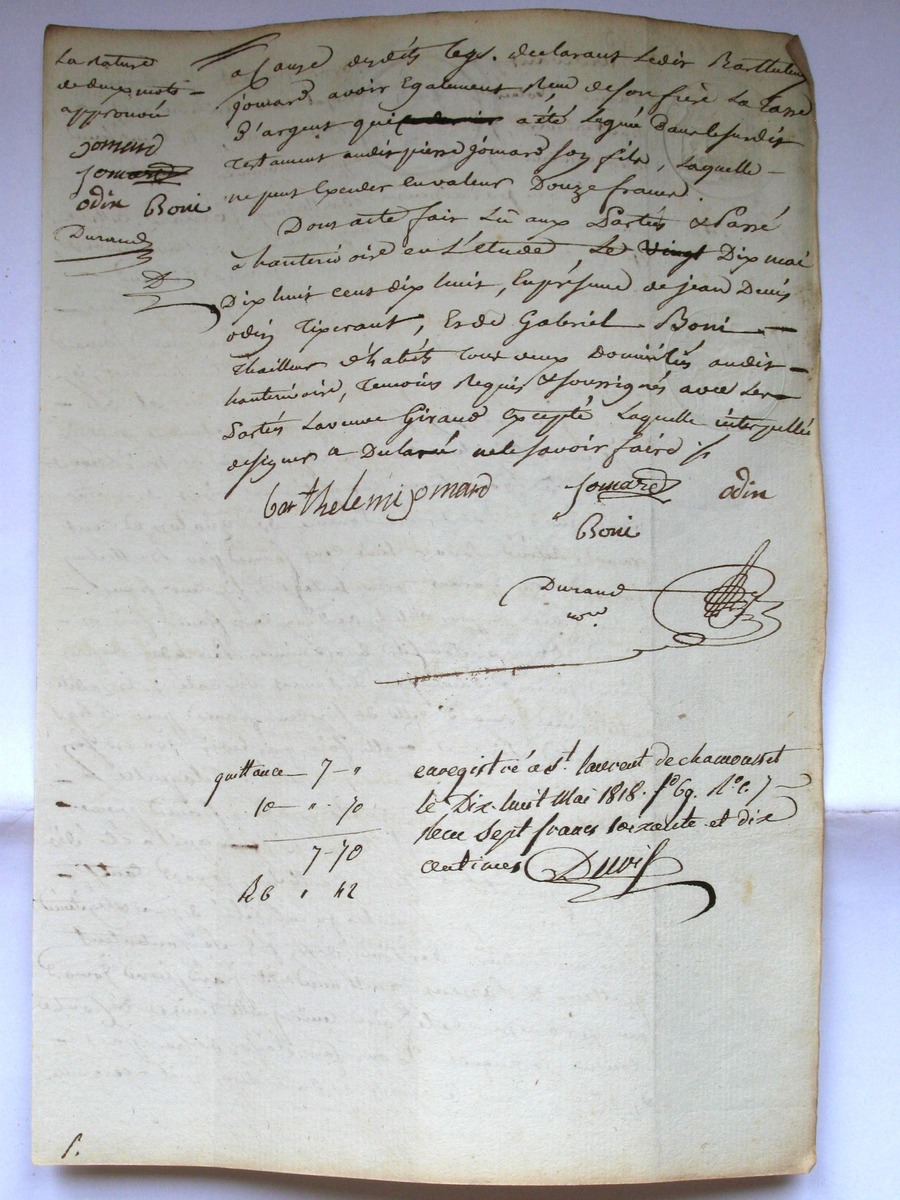 La rature
de deux mots
approuvée
jomard
Jomard
odin Boni
Durand
D
a Cause desdits legs. declarant Ledit Barthelemy
jomard avoir Egalement Reçu de son frère La Tasse
D'argent qui a été Leguée Dans le susdit
testament audit pierre jomard son fils, Laquelle
ne peut Exceder en valeur Douze francs.
Dont acte fait Lû aux Parties & Passé
à hauterivoire en L'étude, Le vingt Dix mai
Dix huit cent dix huit, En présence de jean Denis
odin Tixerant, Et de Gabriel Boni
thailleur d'habits tous deux Domiciliés audit
hauterivoire, Temoins Requis & soussignés avec Les
Parties La veuve Giraud Excepté Laquelle interpellée
de signer a Declaré ne le savoir faire
barthelemi jomard
Jomard odin
Boni
Durand
nre.
quittance 7 "
10 " 70
7-70
R6 " 42
enregistré a St. laurent de chamousset
le Dix huit Mai 1818. fo 69. Ro. c. 7
Recu sept francs soixante et dix
centimes Duvis